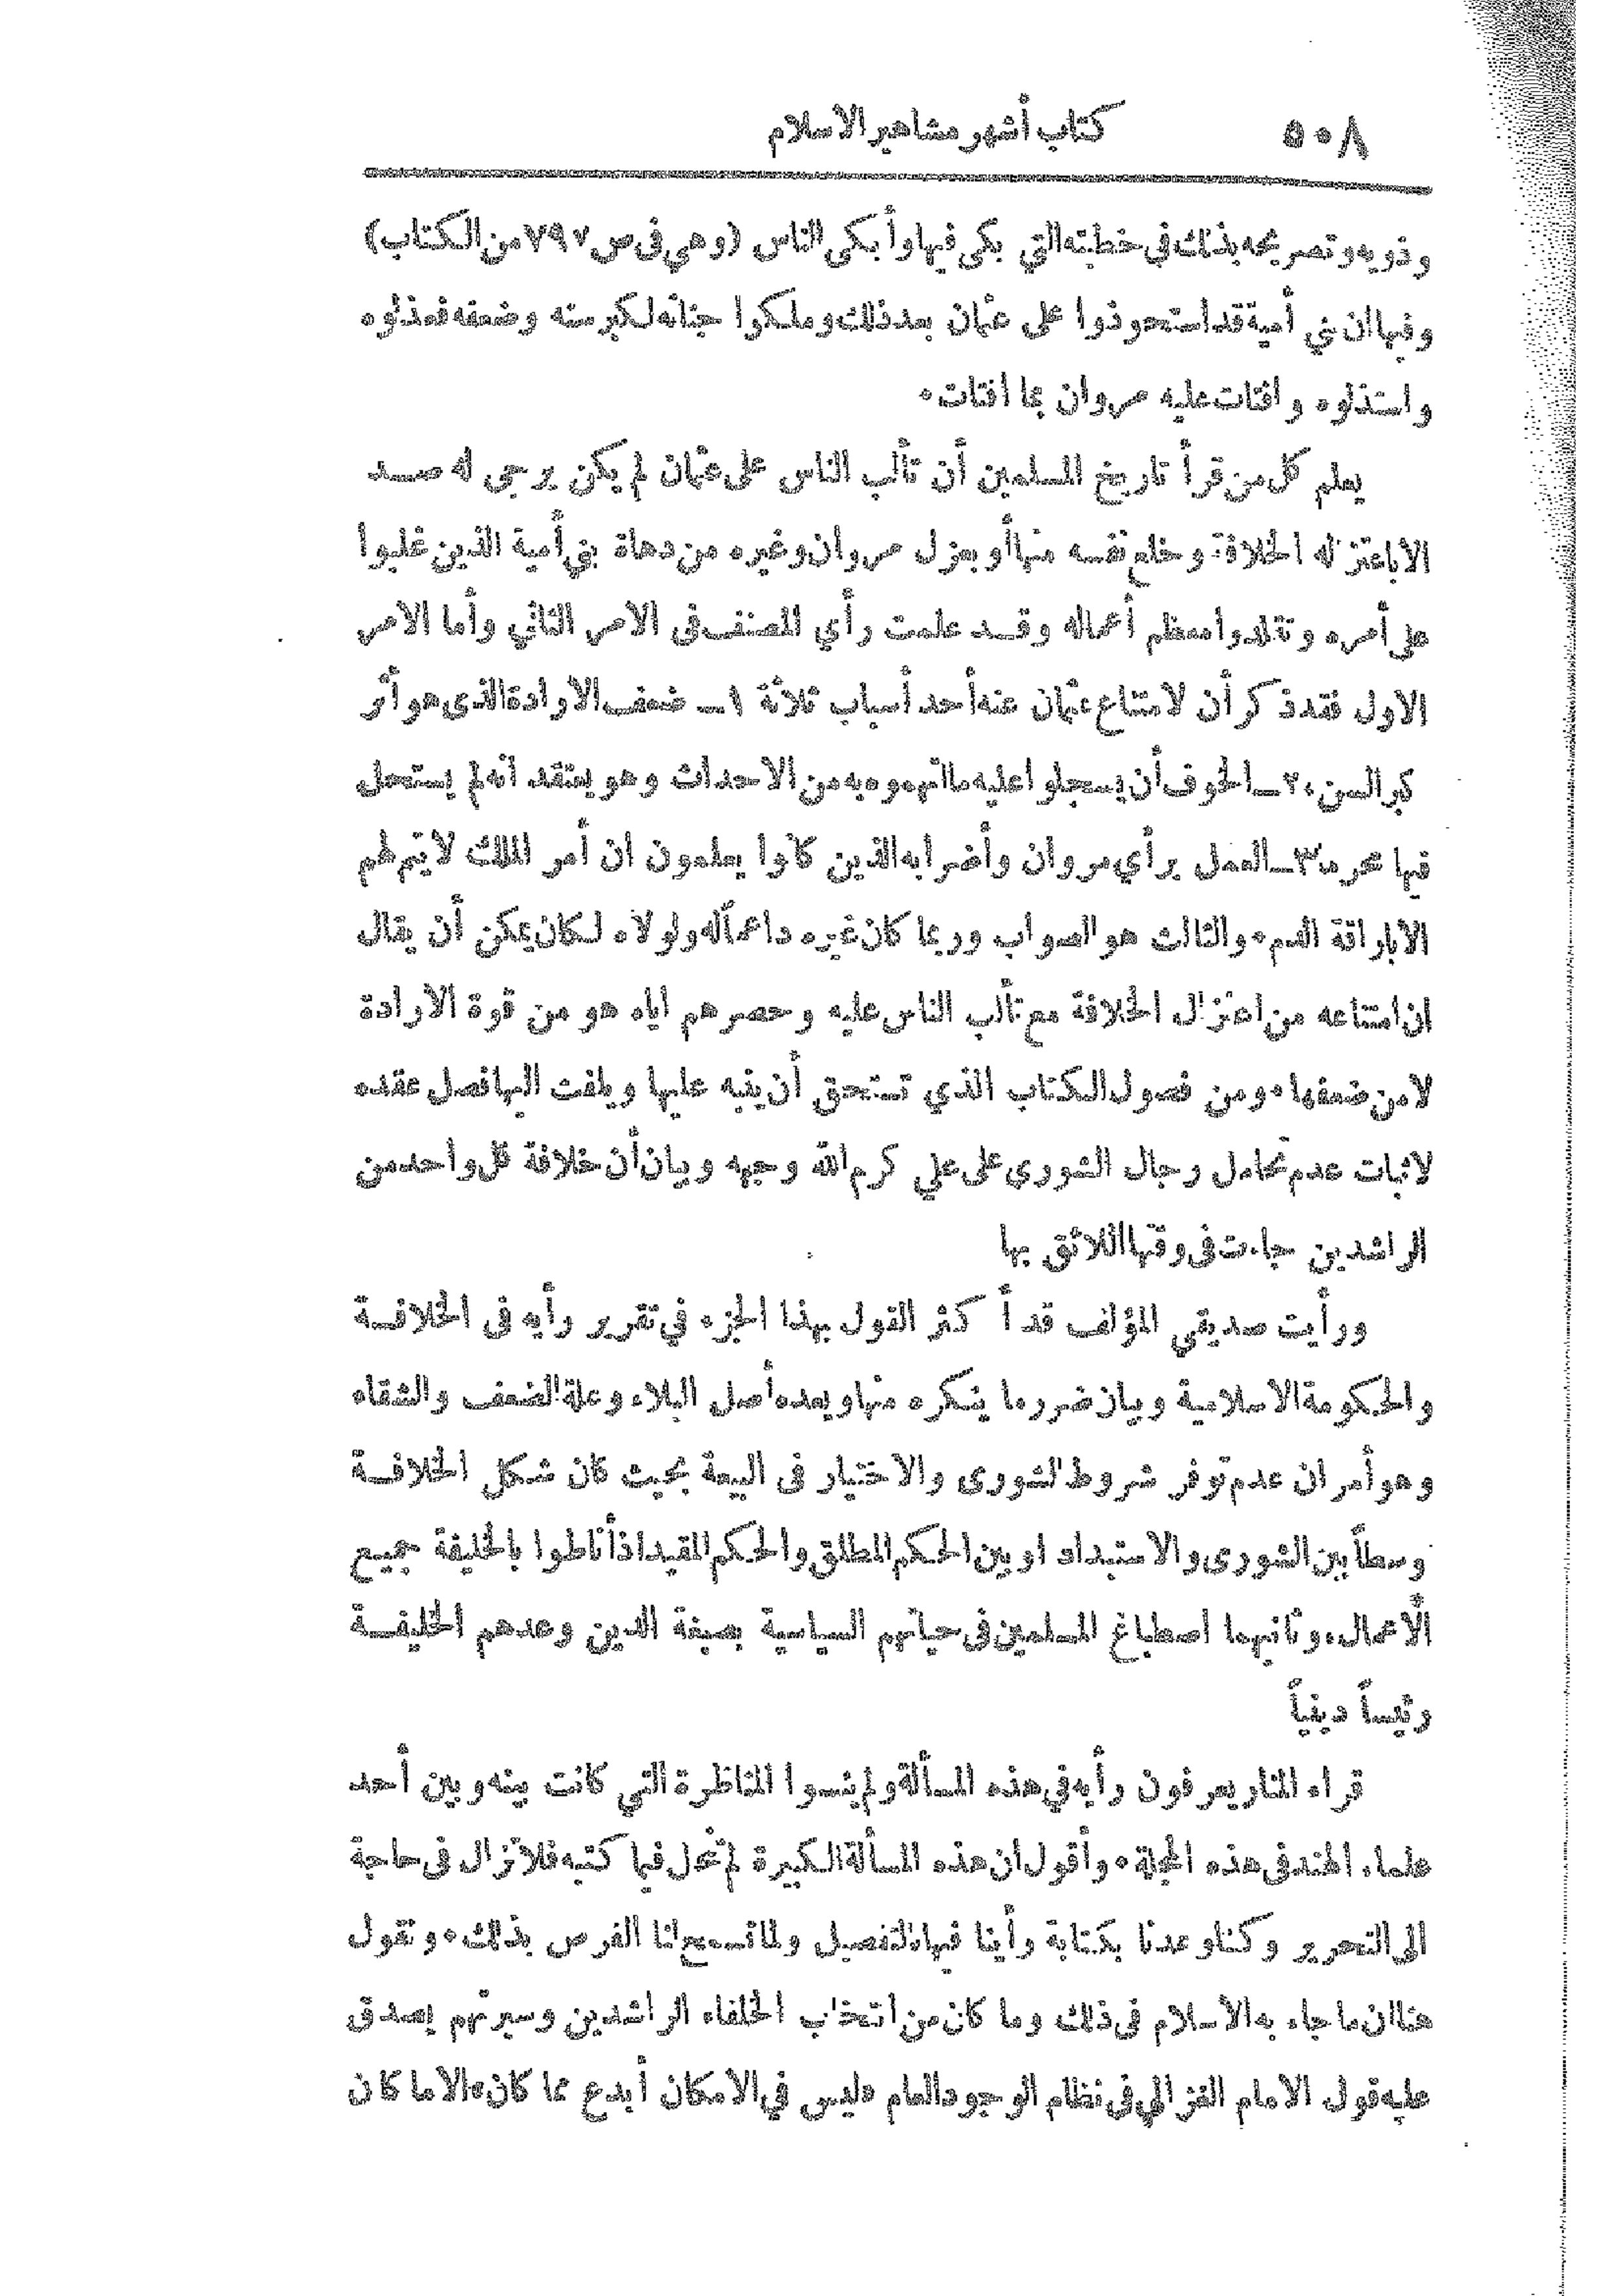 ٥٠٨ كتاب أشهر مشاهير الاسلام
وذويه وتصريحه بذلك في خطبته التي بكى فيها وأبكى الناس (وهي في ص ٧٩٧ من الكتاب)
وفيها ان بني أمية قد استحوذوا على عثمان بعد ذلك وملكوا جنانه لكبر سنه وضعفه فعذلوه
واستذلوه وافتات عليه مروان بما افتات ٠
يعلم كل من قرأ تاريخ المسلمين أن تألب الناس على عثمان لم يكن يرجى له صد
الا باعتزاله الخلافة وخلع نفسه منها أو بعزل مروان وغيره من دهاة بني أمية الذين غلبوا
على أمره وتقلدوا معظم أعماله وقد علمت رأي المصنف في الامر الثاني وأما الامر
الاول فقد ذكر أن لامتناع عثمان عنه أحد أسباب ثلاثة ١ــ ضعف الارادة الذى هو أثر
كبر السن ٠ ٢ــ الخوف أن يسجلوا عليه ما اتهموه به من الاحداث وهو يعتقد انه لم يستحل
فيها محرما ٣ــ العمل برأي مروان وأضرابه الذين كانوا يعلمون ان أمر الملك لا يتم لهم
الا باراقة الدم ٠ والثالث هو الصواب وربما كان غيره داعماً له ولولاه لكان يمكن أن يقال
ان امتناعه من اعتزال الخلافة مع تألب الناس عليه وحصرهم اياه هو من قوة الارادة
لا من ضعفها ٠ ومن فصول الكتاب الذي تستحق أن ينبه عليها ويلفت اليها فصل عقده
لاثبات عدم تحامل رجال الشورى على علي كرم الله وجهه وبيان أن خلافة كل واحد من
الراشدين جاءت في وقتها اللائق بها
ورأيت صديقي المؤلف قد أكثر القول بهذا الجزء في تقرير رأيه في الخلافة
والحكومة الاسلامية وبيان ضرر ما ينكره منها ويعده أصل البلاء وعلة الضعف والشقاء
وهو أمران عدم توفر شروط الشورى والاختيار في البيعة بحيث كان شكل الخلافة
وسطاً بين الشورى والاستبداد او بين الحكم المطلق والحكم المقيد اذ أناطوا بالخليفة جميع
الأعمال ٠ وثانيهما اصطباغ المسلمين في حياتهم السياسية بصبغة الدين وعدهم الخليفة
رئيساً دينياً
قراء المنار يعرفون رأيه في هذه المسألة ولم ينسوا المناظرة التي كانت بينه وبين أحد
علماء الهند في هذه المجلة ٠ وأقول ان هذه المسألة الكبيرة لم تحل فيما كتبه فلا تزال في حاجة
الى التحرير وكنا وعدنا بكتابة رأينا فيها بالتفصيل ولما تسمح لنا الفرص بذلك ٠ ونقول
هنا ان ما جاء به الاسلام في ذلك وما كان من انتخاب الخلفاء الراشدين وسيرتهم يصدق
عليه قول الامام الغزالي في نظام الوجود العام «ليس في الامكان أبدع مما كان» الا ما كان